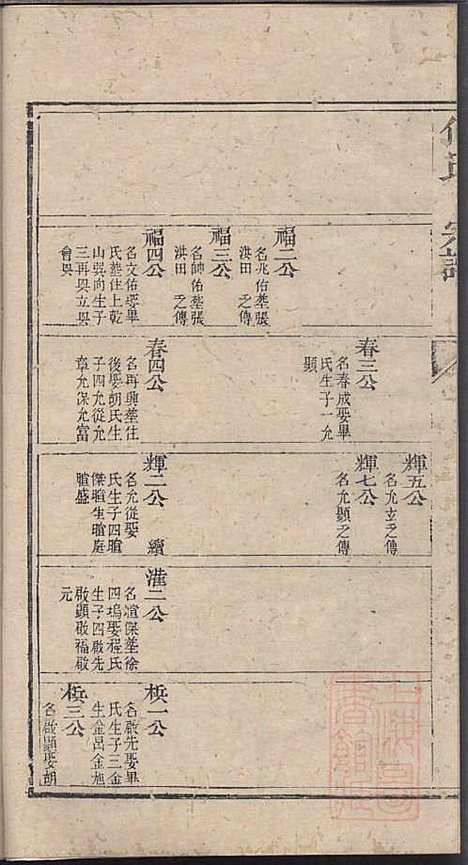 福二公
名兆佑塟張
洪田 之傳
福三公
名帥佑塟張
洪田 之傳
福四公
名文佑娶畢
氏塟住上乾
山巽向生子
三再興立興
會興
春三公
名春成娶畢
氏生子一允
顯
春四公
名再興塟住
後娶胡氏生
子四允從允
章允保允富
輝五公
名允玄之傳
輝七公
名允顯之傳
輝二公 續
名允從娶
氏生子四暄
傑暄生暄庭
暄盛
濮二公
名暄傑塟徐
四塢娶程氏
生子四啟先
啟顯啟福啟
元
槟一公
名啟先娶畢
氏生子三金
生金呂金旭
槟三公
名啟顯娶胡